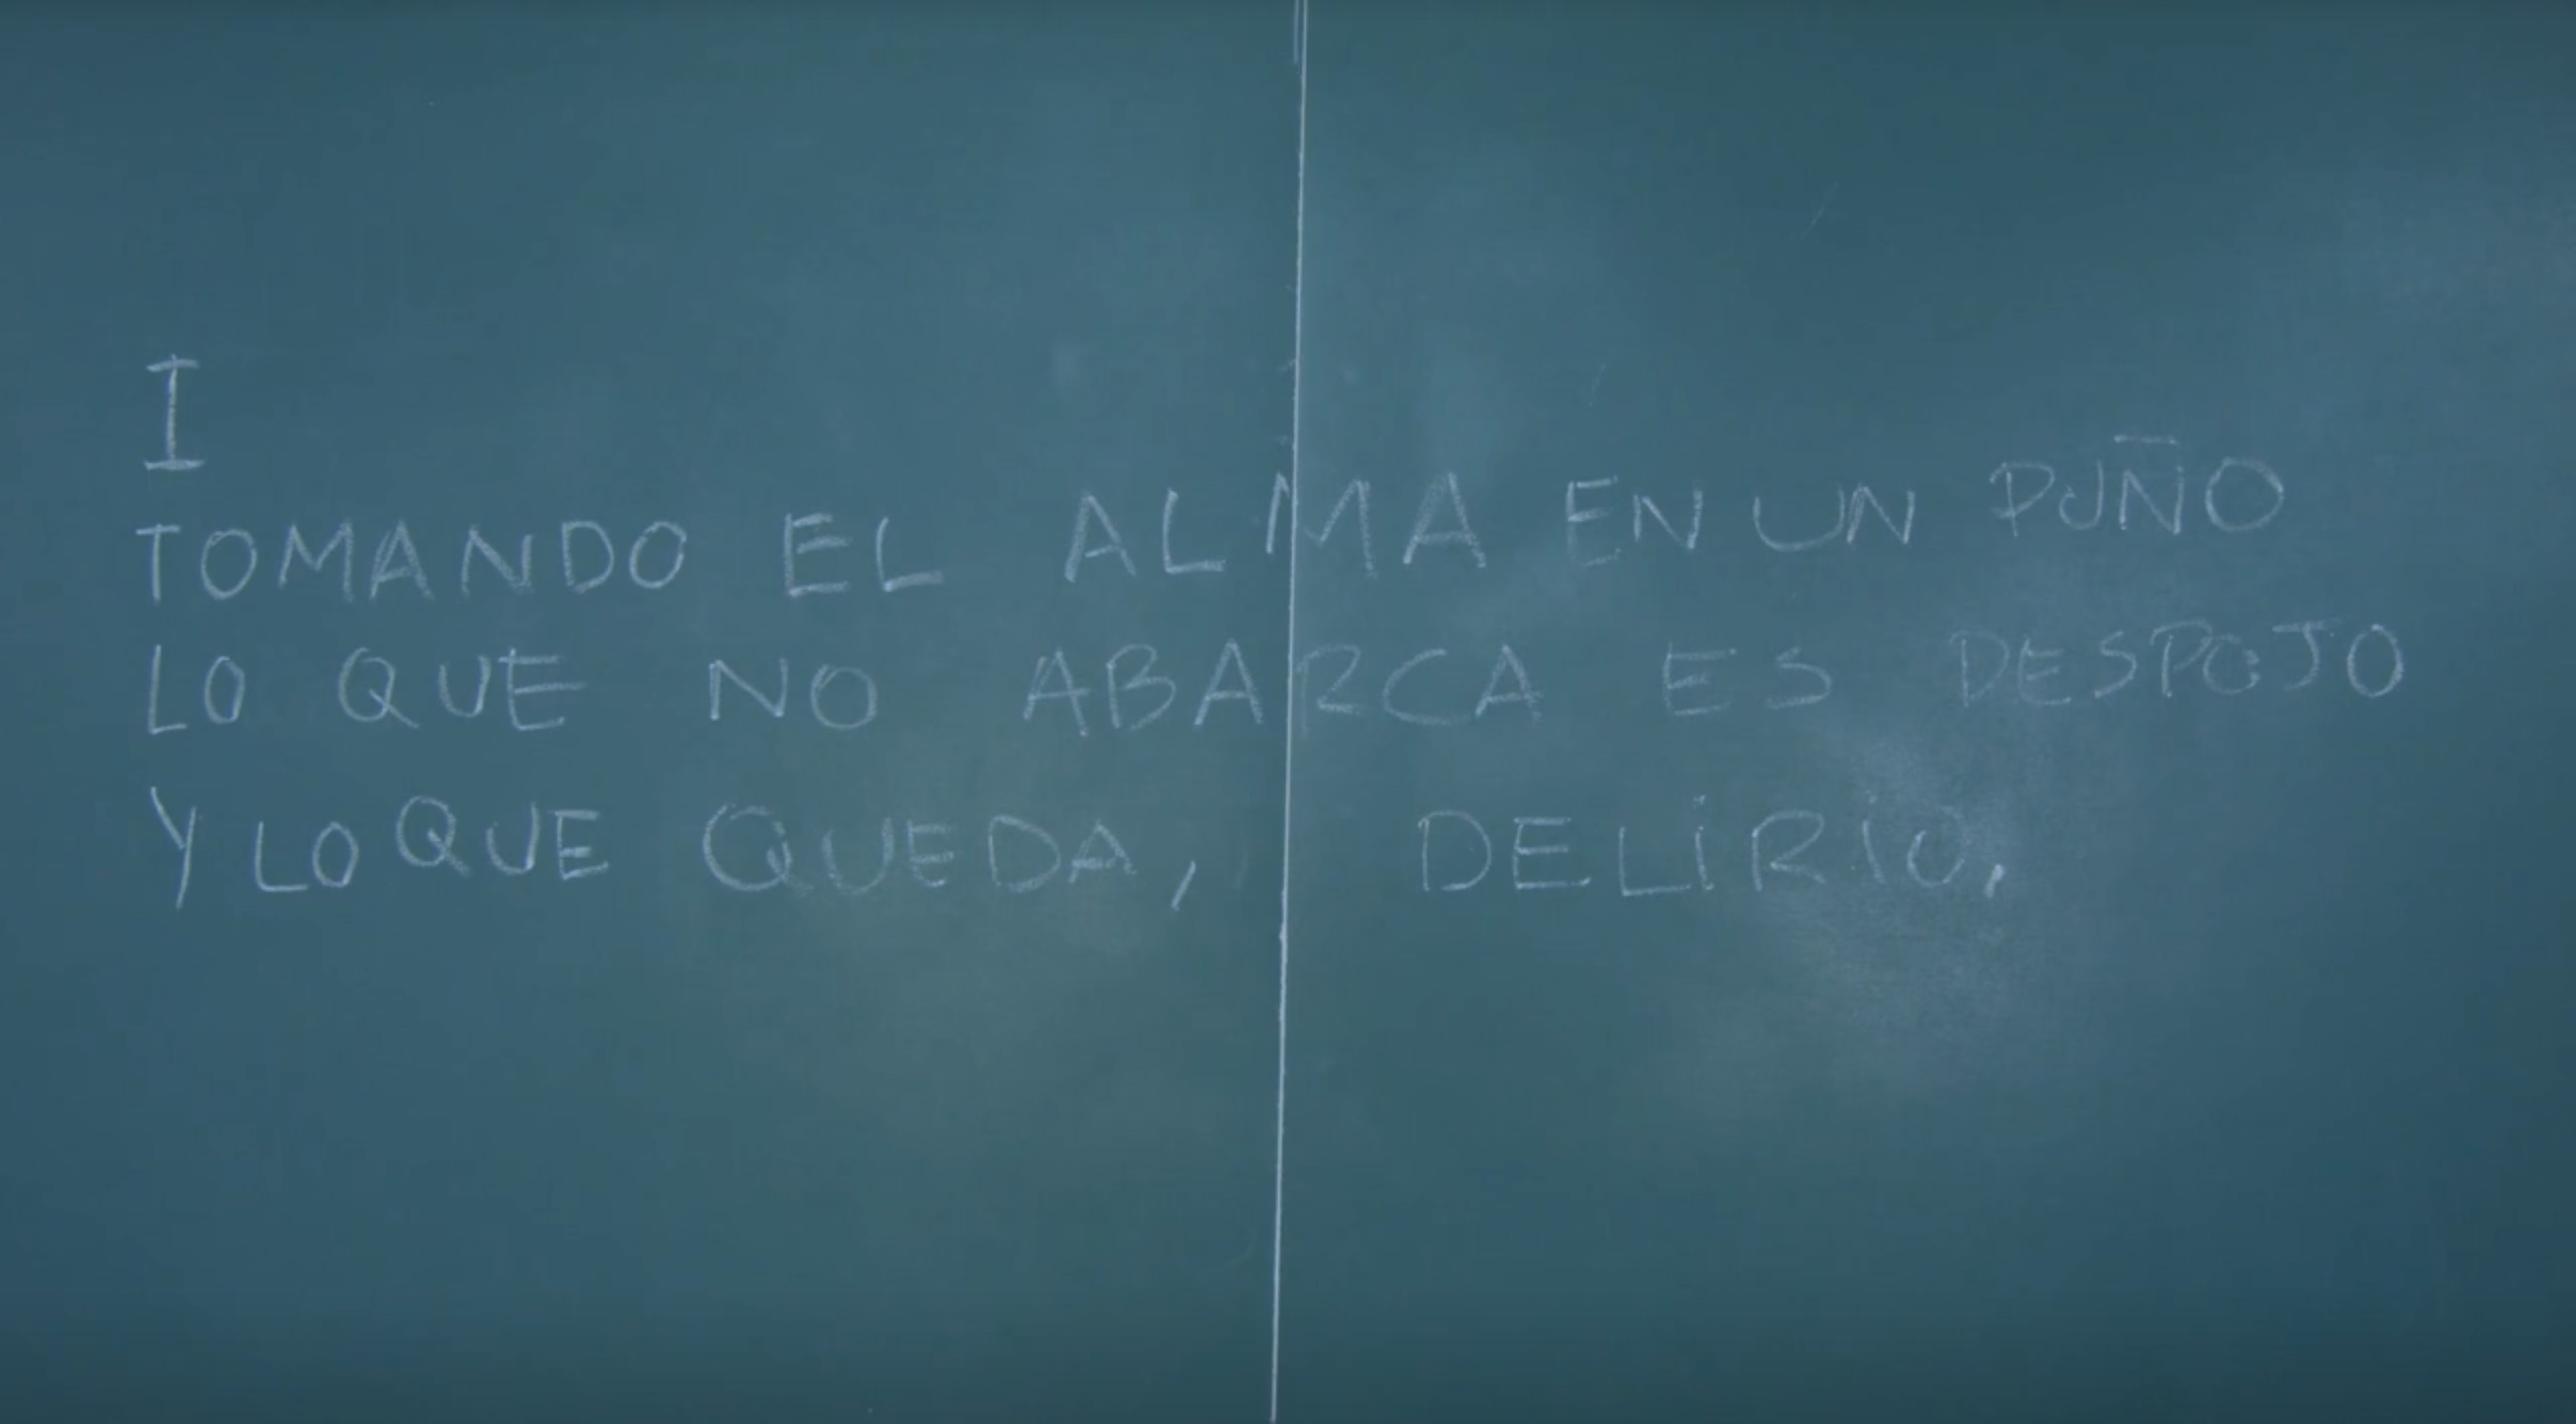 I
TOMANDO EL ALMA EN UN PUÑO
LO QUE NO ABARCA ES DESPOJO
Y LO QUE QUEDA, DELiRiO.